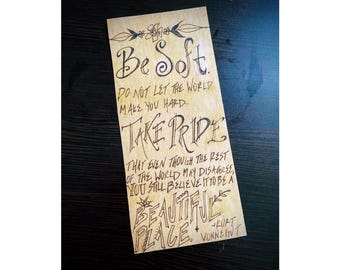 Be Soft.
DO NOT LET THE WORLD
MAKE YOU HARD.
TAKE PRIDE
THAT EVEN THOUGH THE REST
OF THE WORLD MAY DISAGREE,
YOU STILL BELIEVE IT TO BE A
BEAUTIFUL
PLACE.
-KURT
VONNEGUT